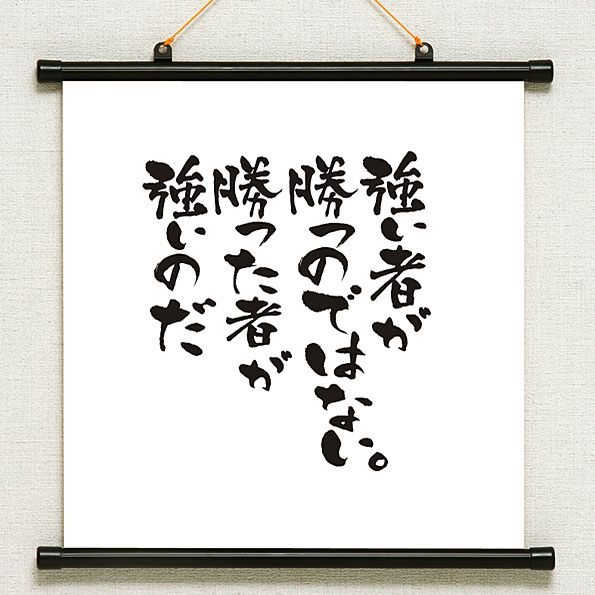 強い者が
勝つのではない。
勝った者が
強いのだ